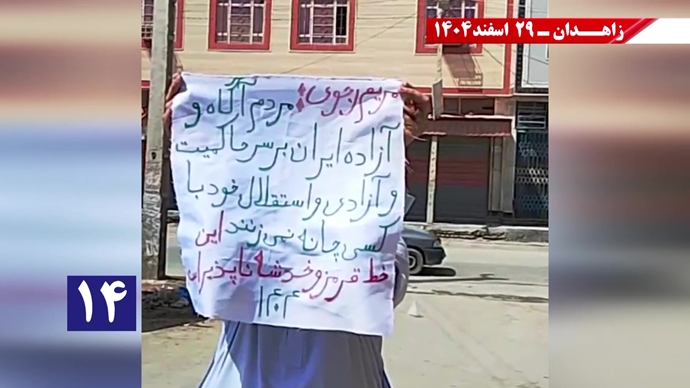 زاهـدان ـ ۲۹ اسفند۱۴۰۴
مریم رجوی: مردم آگاه و
آزاده ایران بر سر حاکمیت
و آزادی و استقلال خود با
کسی چانه نمی‌زنند این
خط قرمز و خدشه ناپذیر
۱۴